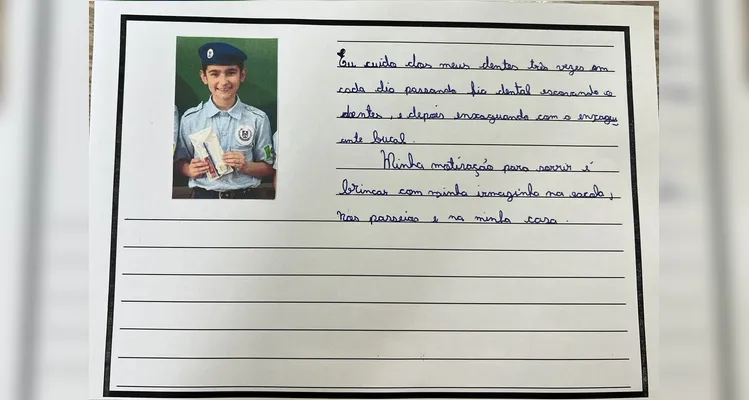 Eu cuido dos meus dentes três vezes em
cada dia passando fio dental escovando o
dentes, e depois enxaguando com o enxagu
ante bucal.
Minha motivação para sorrir é
brincar com minha irmãzinha na escola,
nos passeios e na minha casa.